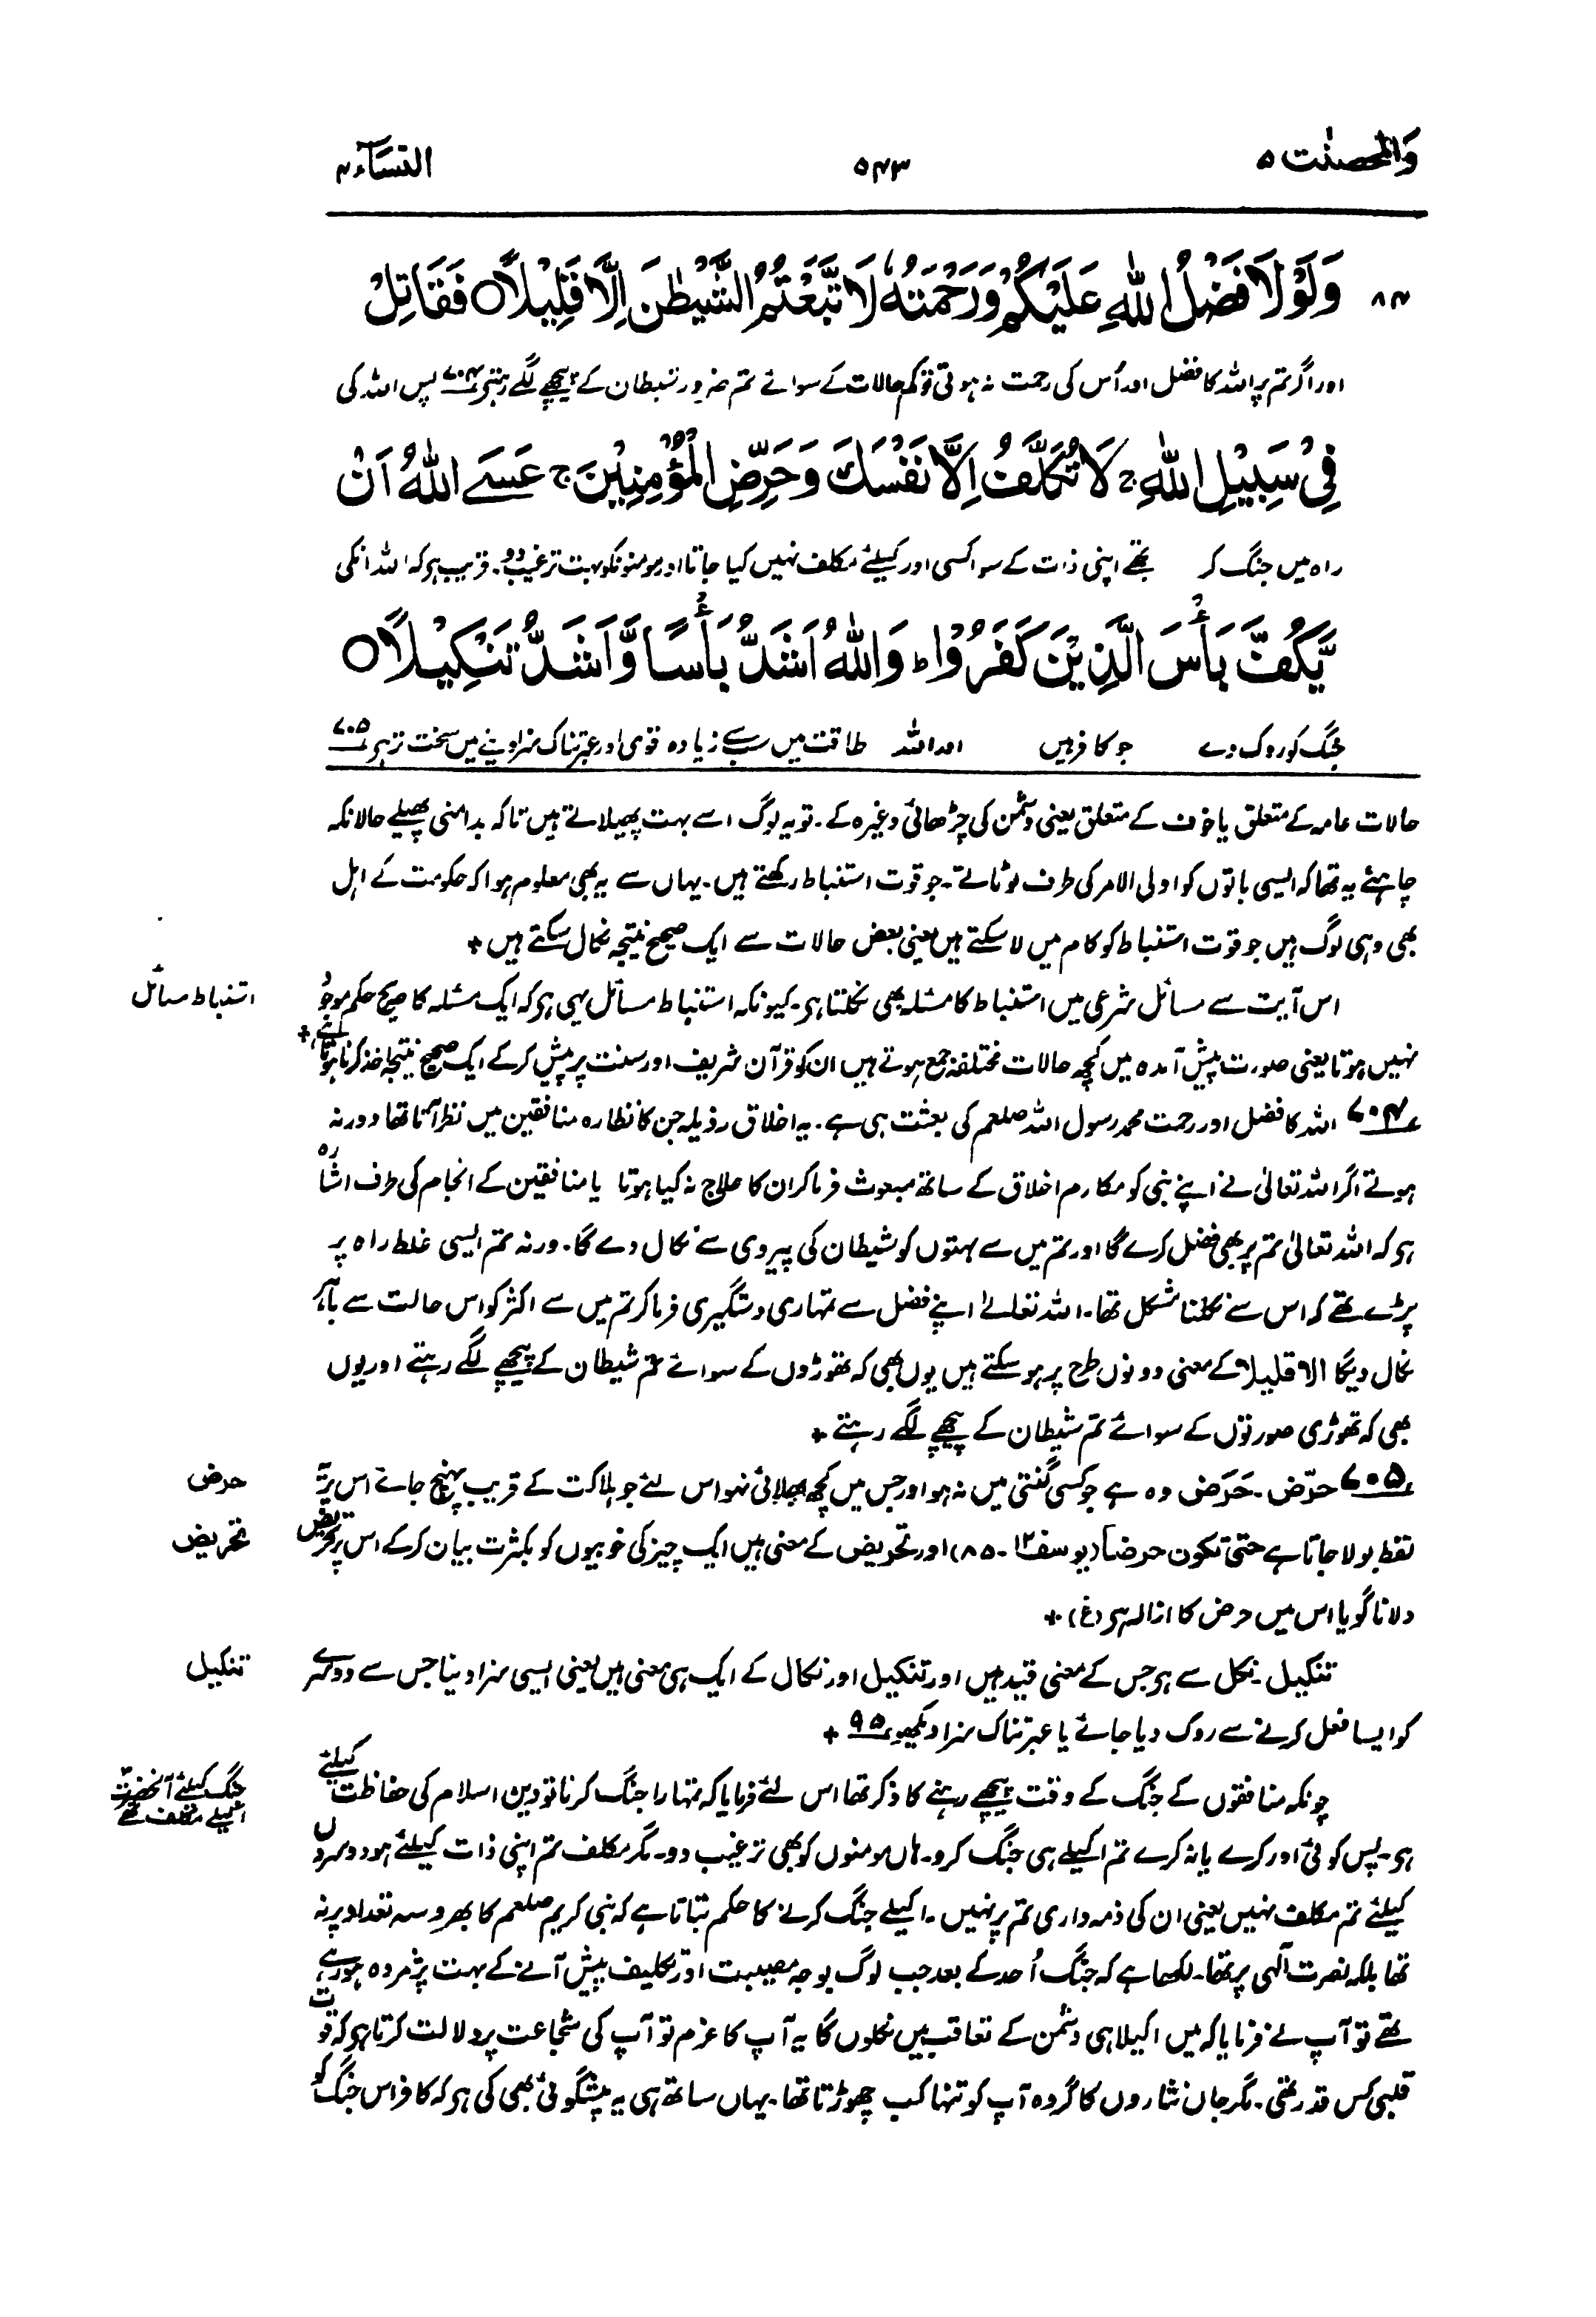 والمحصنٰت ۵
۵۴۳
النسآء ۴
وَلَوْلَا فَضْلُ اللّٰهِ عَلَيْكُمْ وَرَحْمَتُهٗ لَا تَّبَعْتُمُ الشَّيْطٰنَ اِلَّا قَلِيْلًا ○ فَقَاتِلْ
۸۴
اور اگر تم پر اللہ کا فضل اور اُس کی رحمت نہ ہوتی تو کم حالات کے سوائے تم ضرور شیطان کے پیچھے لگے رہتے ۷۰۴ پس اللہ کی
فِيْ سَبِيْلِ اللّٰهِ ج لَا تُكَلَّفُ اِلَّا نَفْسَكَ وَحَرِّضِ الْمُؤْمِنِيْنَ ج عَسَے اللّٰهُ اَنْ
راہ میں جنگ کر تجھے اپنی ذات کے سوا کسی اور کیلئے مکلف نہیں کیا جاتا اور مومنونکو بہت ترغیب دو۔ قریب ہو کہ اللہ انکی
يَّكُفَّ بَأْسَ الَّذِيْنَ كَفَرُوْا ط وَاللّٰهُ اَشَدُّ بَأْسًا وَّاَشَدُّ تَنْكِيْلًا ○
جنگ کو روک دے جو کافر ہیں اور اللہ طاقت میں سب سے زیادہ قوی اور عبرتناک سزا دینے میں سخت تر ہو ۷۰۵
حالات عامہ کے متعلق یا خوف کے متعلق یعنی دشمن کی چڑھائی وغیرہ کے۔ تو یہ لوگ اسے بہت پھیلاتے ہیں تاکہ بدامنی پھیلے حالانکہ
چاہئے یہ تھا کہ ایسی باتوں کو اولی الامر کی طرف لوٹاتے۔ جو قوت استنباط رکھتے ہیں۔ یہاں سے یہ بھی معلوم ہوا کہ حکومت کے اہل
بھی وہی لوگ ہیں جو قوت استنباط کو کام میں لا سکتے ہیں یعنی بعض حالات سے ایک صحیح نتیجہ نکال سکتے ہیں +
استنباط مسائل
اس آیت سے مسائل شرعی میں استنباط کا مسئلہ بھی نکلتا ہو۔ کیونکہ استنباط مسائل یہی ہو کہ ایک مسئلہ کا صریح حکم موجود
نہیں ہوتا یعنی صورت پیش آمدہ میں کچھ حالات مختلفہ جمع ہوتے ہیں ان کو قرآن شریف اور سنت پر پیش کرکے ایک صحیح نتیجہ اخذ کرنا ہوتا ہے +
۷۰۴ اللہ کا فضل اور رحمت محمد رسول اللہ صلعم کی بعثت ہی ہے۔ یہ اخلاق رذیلہ جن کا نظارہ منافقین میں نظر آتا تھا دور نہ
ہوتے اگر اللہ تعالیٰ نے اپنے نبی کو مکارم اخلاق کے ساتھ مبعوث فرما کر ان کا علاج نہ کیا ہوتا یا منافقین کے انجام کی طرف اشارہ
ہو کہ اللہ تعالیٰ تم پر بھی فضل کرے گا اور تم میں سے بہتوں کو شیطان کی پیروی سے نکال دے گا۔ ورنہ تم ایسی غلط راہ پر
پڑے تھے کہ اس سے نکلنا مشکل تھا۔ اللہ تعالےٰ اپنے فضل سے تمہاری دستگیری فرما کر تم میں سے اکثر کو اس حالت سے باہر
نکال دیگا الا قلیلا کے معنی دونوں طرح پر ہو سکتے ہیں یوں بھی کہ تھوڑوں کے سوائے تم شیطان کے پیچھے لگے رہتے اور یوں
بھی کہ تھوڑی صورتوں کے سوائے تم شیطان کے پیچھے لگے رہتے +
حرض
۷۰۵ حرّض۔ حَرَض وہ ہے جو کسی گنتی میں نہ ہو اور جس میں کچھ بھلائی نہو اس لئے جو ہلاکت کے قریب پہنچ جائے اس پر یہ
تحریض
لفظ بولا جاتا ہے حتی تکون حرضا (یوسف ۱۲۔ ۸۵) اور تحریض کے معنی ہیں ایک چیز کی خوبیوں کو بکثرت بیان کرکے اس پر تحریض
دلانا گویا اس میں حرض کا ازالہ ہو (غ) +
تنکیل
تنکیل۔ نکل سے ہو جس کے معنی قید ہیں اور تنکیل اور نکال کے ایک ہی معنی ہیں یعنی ایسی سزا دینا جس سے دوسرے
کو ایسا فعل کرنے سے روک دیا جائے یا عبرتناک سزا دیکھو ۹۵ +
جنگ کیلئے آنحضرتؐ
اکیلے مکلف تھے
چونکہ منافقوں کے جنگ کے وقت پیچھے رہنے کا ذکر تھا اس لئے فرمایا کہ تمہارا جنگ کرنا تو دین اسلام کی حفاظت کیلئے
ہو۔ پس کوئی اور کرے یا نہ کرے تم اکیلے ہی جنگ کرو۔ ہاں مومنوں کو بھی ترغیب دو۔ مگر مکلف تم اپنی ذات کیلئے ہو دوسروں
کیلئے تم مکلف نہیں یعنی ان کی ذمہ داری تم پر نہیں۔ اکیلے جنگ کرنے کا حکم بتاتا ہے کہ نبی کریم صلعم کا بھروسہ تعداد پر نہ
تھا بلکہ نصرت الٰہی پر تھا۔ لکھا ہے کہ جنگ اُحد کے بعد جب لوگ بوجہ مصیبت اور تکلیف پیش آنے کے بہت پژمردہ ہو رہے
تھے تو آپ نے فرمایا کہ میں اکیلا ہی دشمن کے تعاقب میں نکلوں گا یہ آپ کا عزم تو آپ کی شجاعت پر دلالت کرتا ہو کہ قوت
قلبی کس قدر تھی۔ مگر جان نثاروں کا گروہ آپ کو تنہا کب چھوڑتا تھا۔ یہاں ساتھ ہی یہ پیشگوئی بھی کی ہو کہ کافر اس جنگ کو